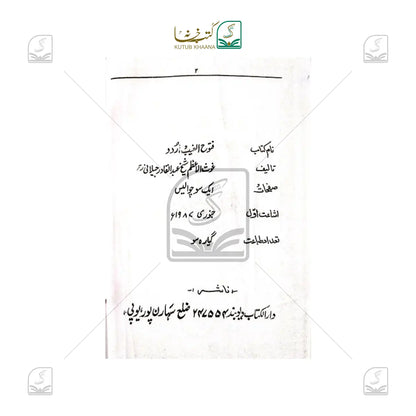 کتب خانہ
KUTUB KHAANA
۲
نام کتاب فتوح الغیب اُردو
تالیف غوث الاعظم شیخ عبدالقادر جیلانی رح
صفحات ایک سو چوالیس
اشاعت اوّل جنوری ۱۹۸۷ء
تعداد طباعت گیارہ سو
ناشر
دارالکتاب دیوبند ۲۴۷۵۵۴ ضلع سہارن پور، یوپی